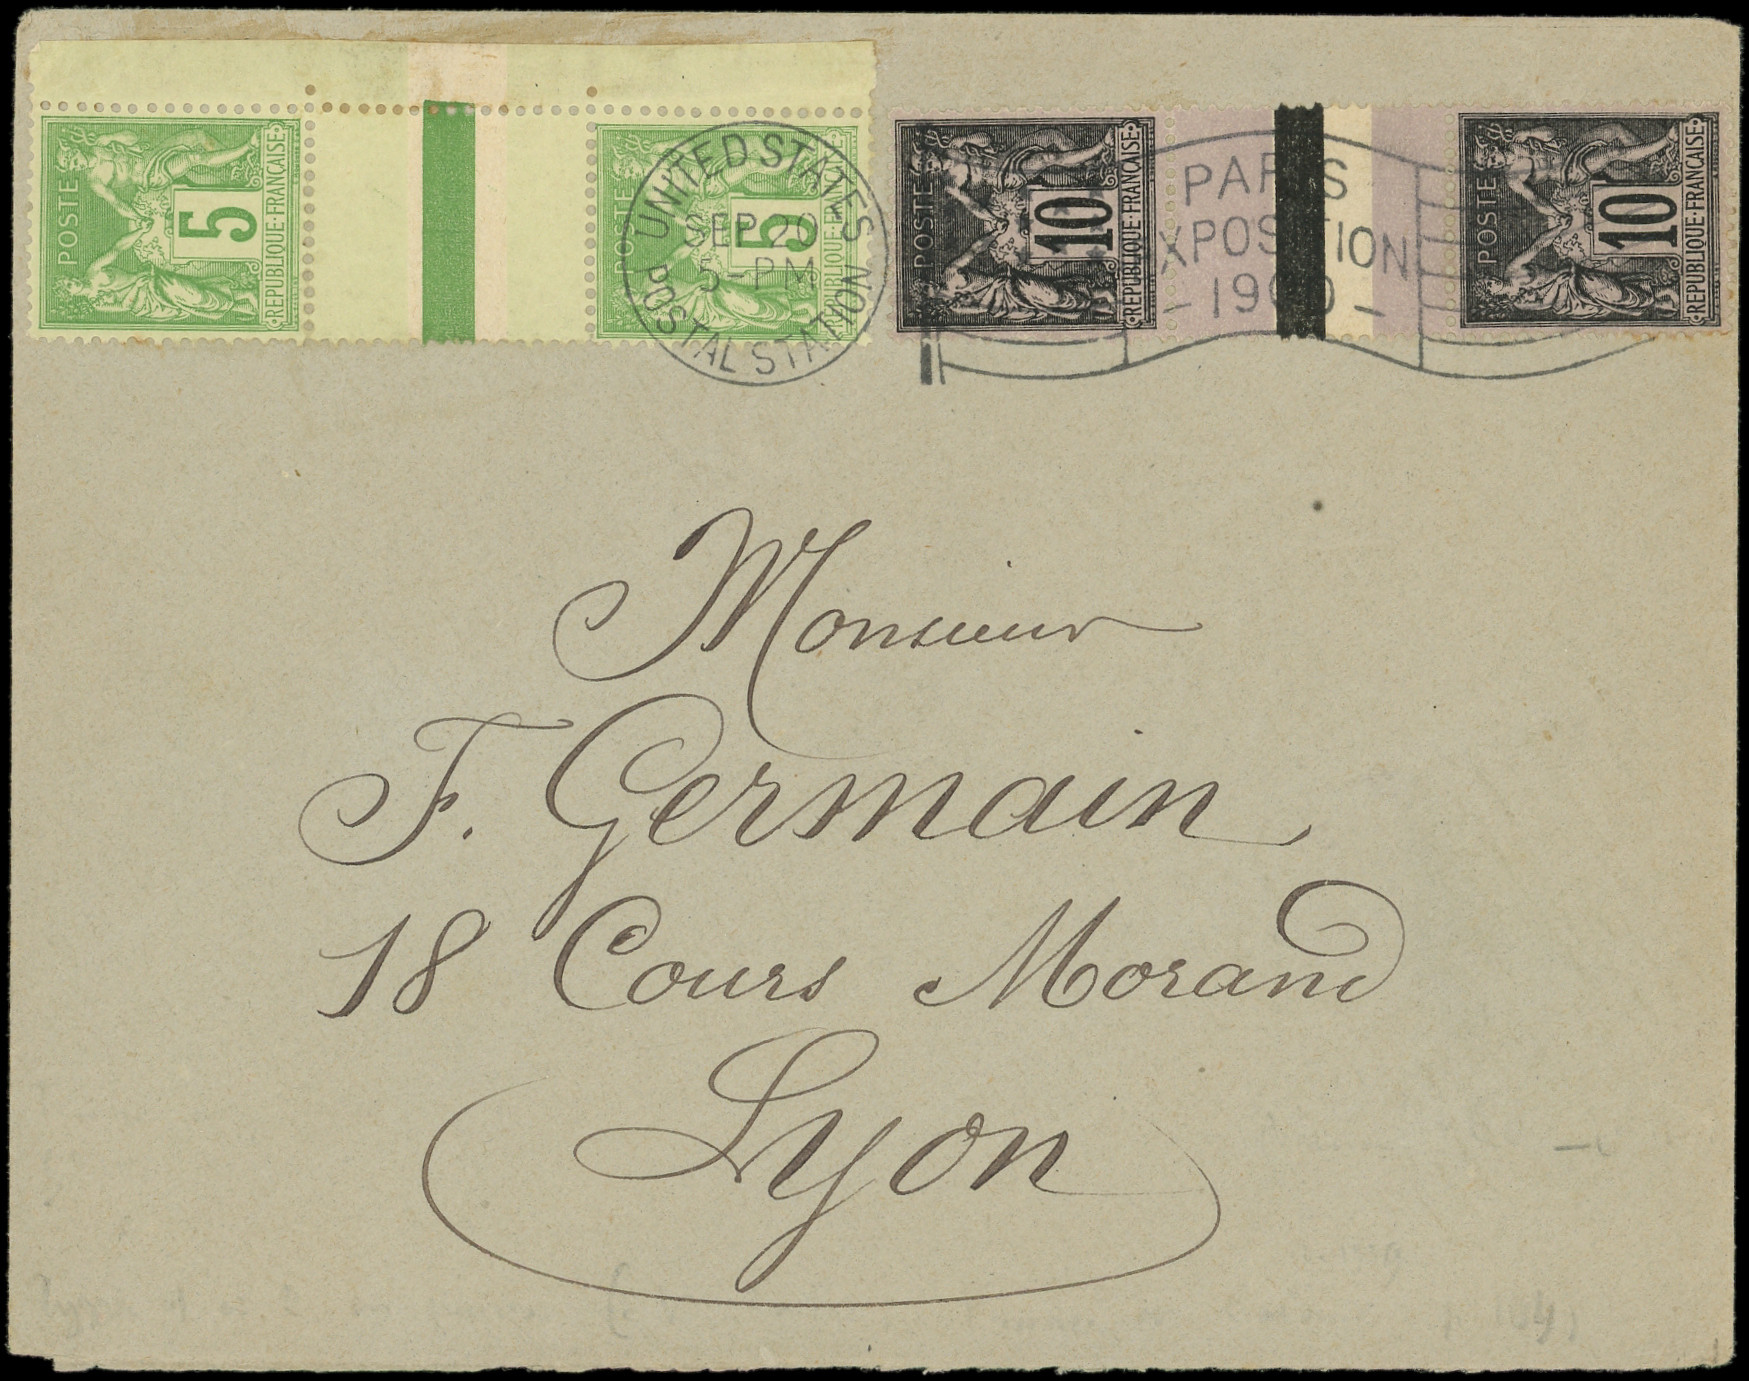 POSTE 5 REPUBLIQUE·FRANÇAISE
POSTE 5 REPUBLIQUE·FRANÇAISE
POSTE 10 REPUBLIQUE·FRANÇAISE
POSTE 10 REPUBLIQUE·FRANÇAISE
UNITED STATES
SEP 20
5-PM
POSTAL STATION
PARIS
EXPOSITION
-1900-
Monsieur
F. Germain
18 Cours Morand
Lyon